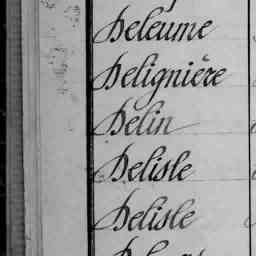 Deleume
Delignière
Delin
Delisle
Delisle